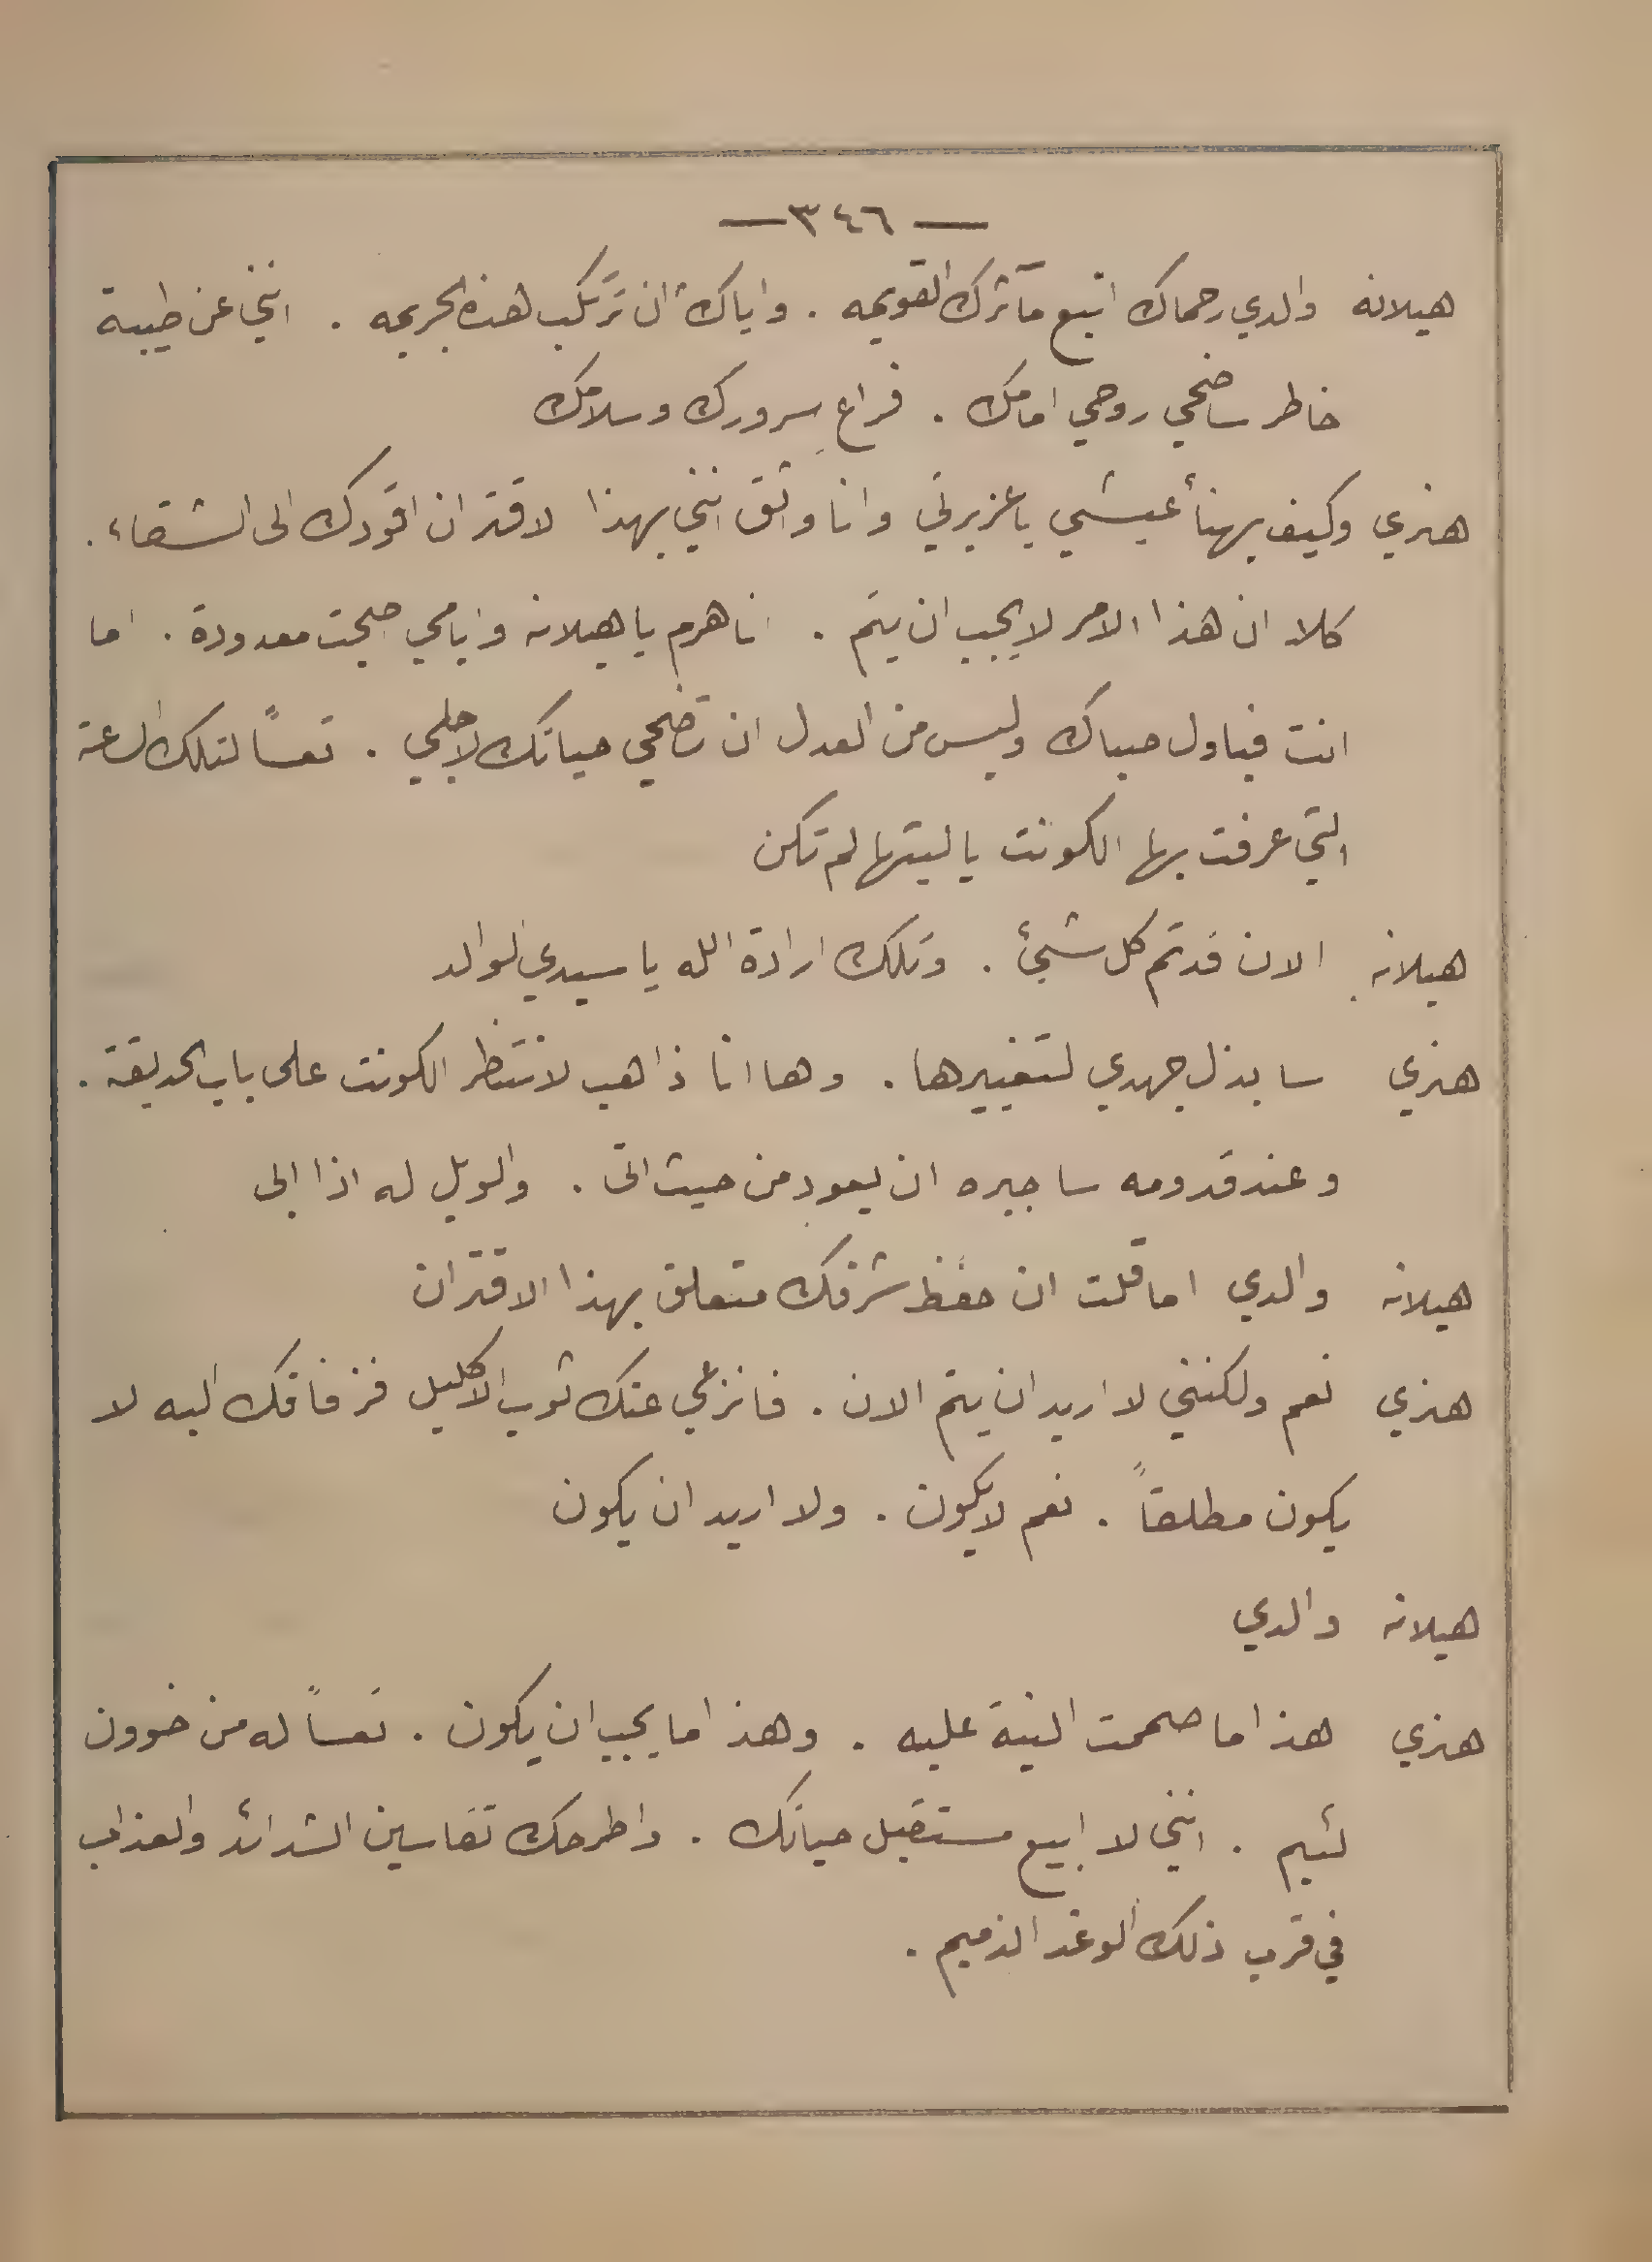 — ٣٤٦ —
هيلانه والدي رحماك اتبع مآثرك القويمه . واياك ان ترتكب هذه الجريمه . انني عن طيبة
خاطر ساضحي روحي امامك . فراعِ سرورك وسلامك
هنري وكيف يهنأ عيشي يا عزيزتي وانا واثق انني بهذا الاقتران اقودك الى الشقاء .
كلا ان هذا الامر لا يجب ان يتم . انا هرم يا هيلانه وايامي اصبحت معدودة . اما
انت فباول صباك وليس من العدل ان تضحي حياتك لاجلي . تعساً لتلك الساعة
التي عرفت بها الكونت يا ليتها لم تكن
هيلانه الان قد تم كل شيئ . وتلك ارادة الله يا سيدي الوالد
هنري سابذل جهدي لتغييرها . وها انا ذاهب لانتظر الكونت على باب الحديقة .
وعند قدومه ساجبره ان يعود من حيث اتى . والويل له اذا ابى
هيلانه والدي اما قلت ان حفظ شرفك متعلق بهذا الاقتران
هنري نعم ولكنني لا اريد ان يتم الان . فانزعي عنك ثوب الاكليل فزفافك اليه لا
يكون مطلقاً . نعم لا يكون . ولا اريد ان يكون
هيلانه والدي
هنري هذا ما صممت النية عليه . وهذا ما يجب ان يكون . تعساً له من خوون
لئيم . انني لا ابيع مستقبل حياتك . واطرحك تقاسين الشدائد والعذاب
في قرب ذلك الوغد الذميم .